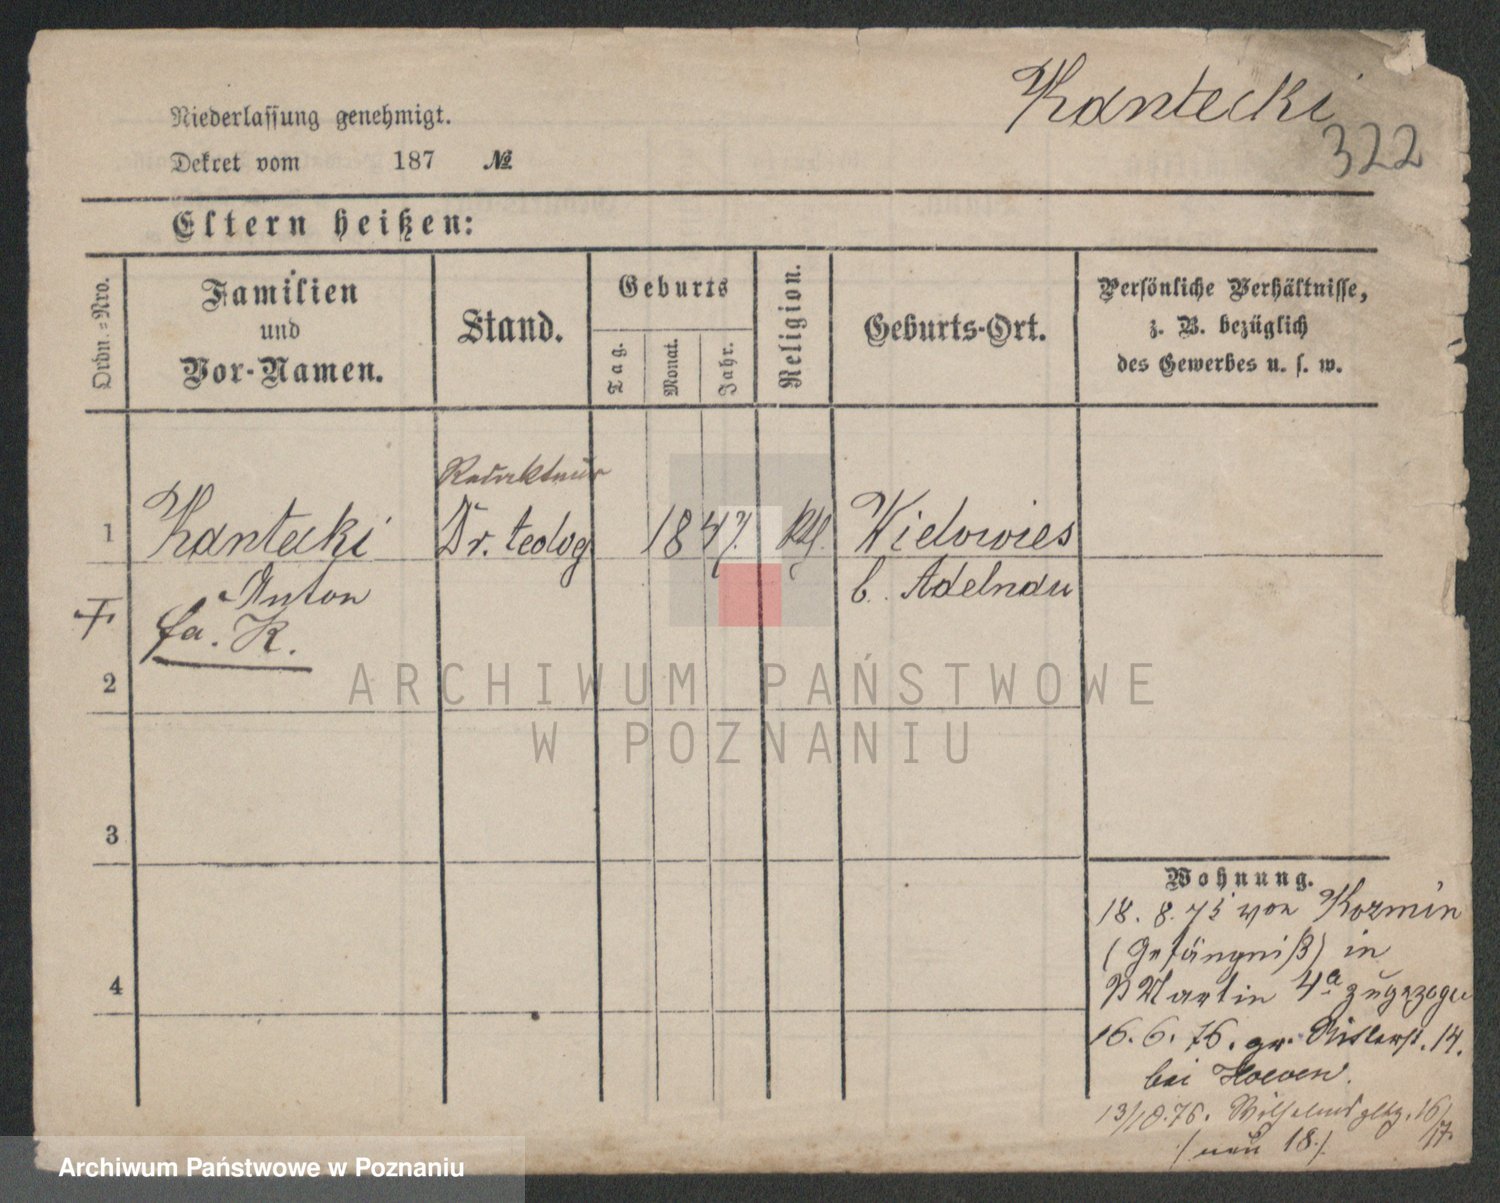 Kantecki
322
Niederlassung genehmigt.
Dekret vom 187 №
Eltern heißen:
Ordn.=Nro.
Familien
und
Vor-Namen.
Stand.
Geburts
Tag.
Monat.
Jahr.
Religion.
Geburts-Ort.
Persönliche Verhältnisse,
z. B. bezüglich
des Gewerbes u. s. w.
Redakteur
1 Kantecki Dr. teolog 1847. kth. Wielowies
Anton b. Adelnau
fa. K.
2
3
4
Wohnung.
18. 8. 75 von Kozmin
(Gefängniß) in
St Martin 4a zugezogen
16. 6. 76. gr. Ritterst. 14.
bei
13/10.76. 16/17
/neu 18./
ARCHIWUM PAŃSTWOWE
W POZNANIU
Archiwum Państwowe w Poznaniu